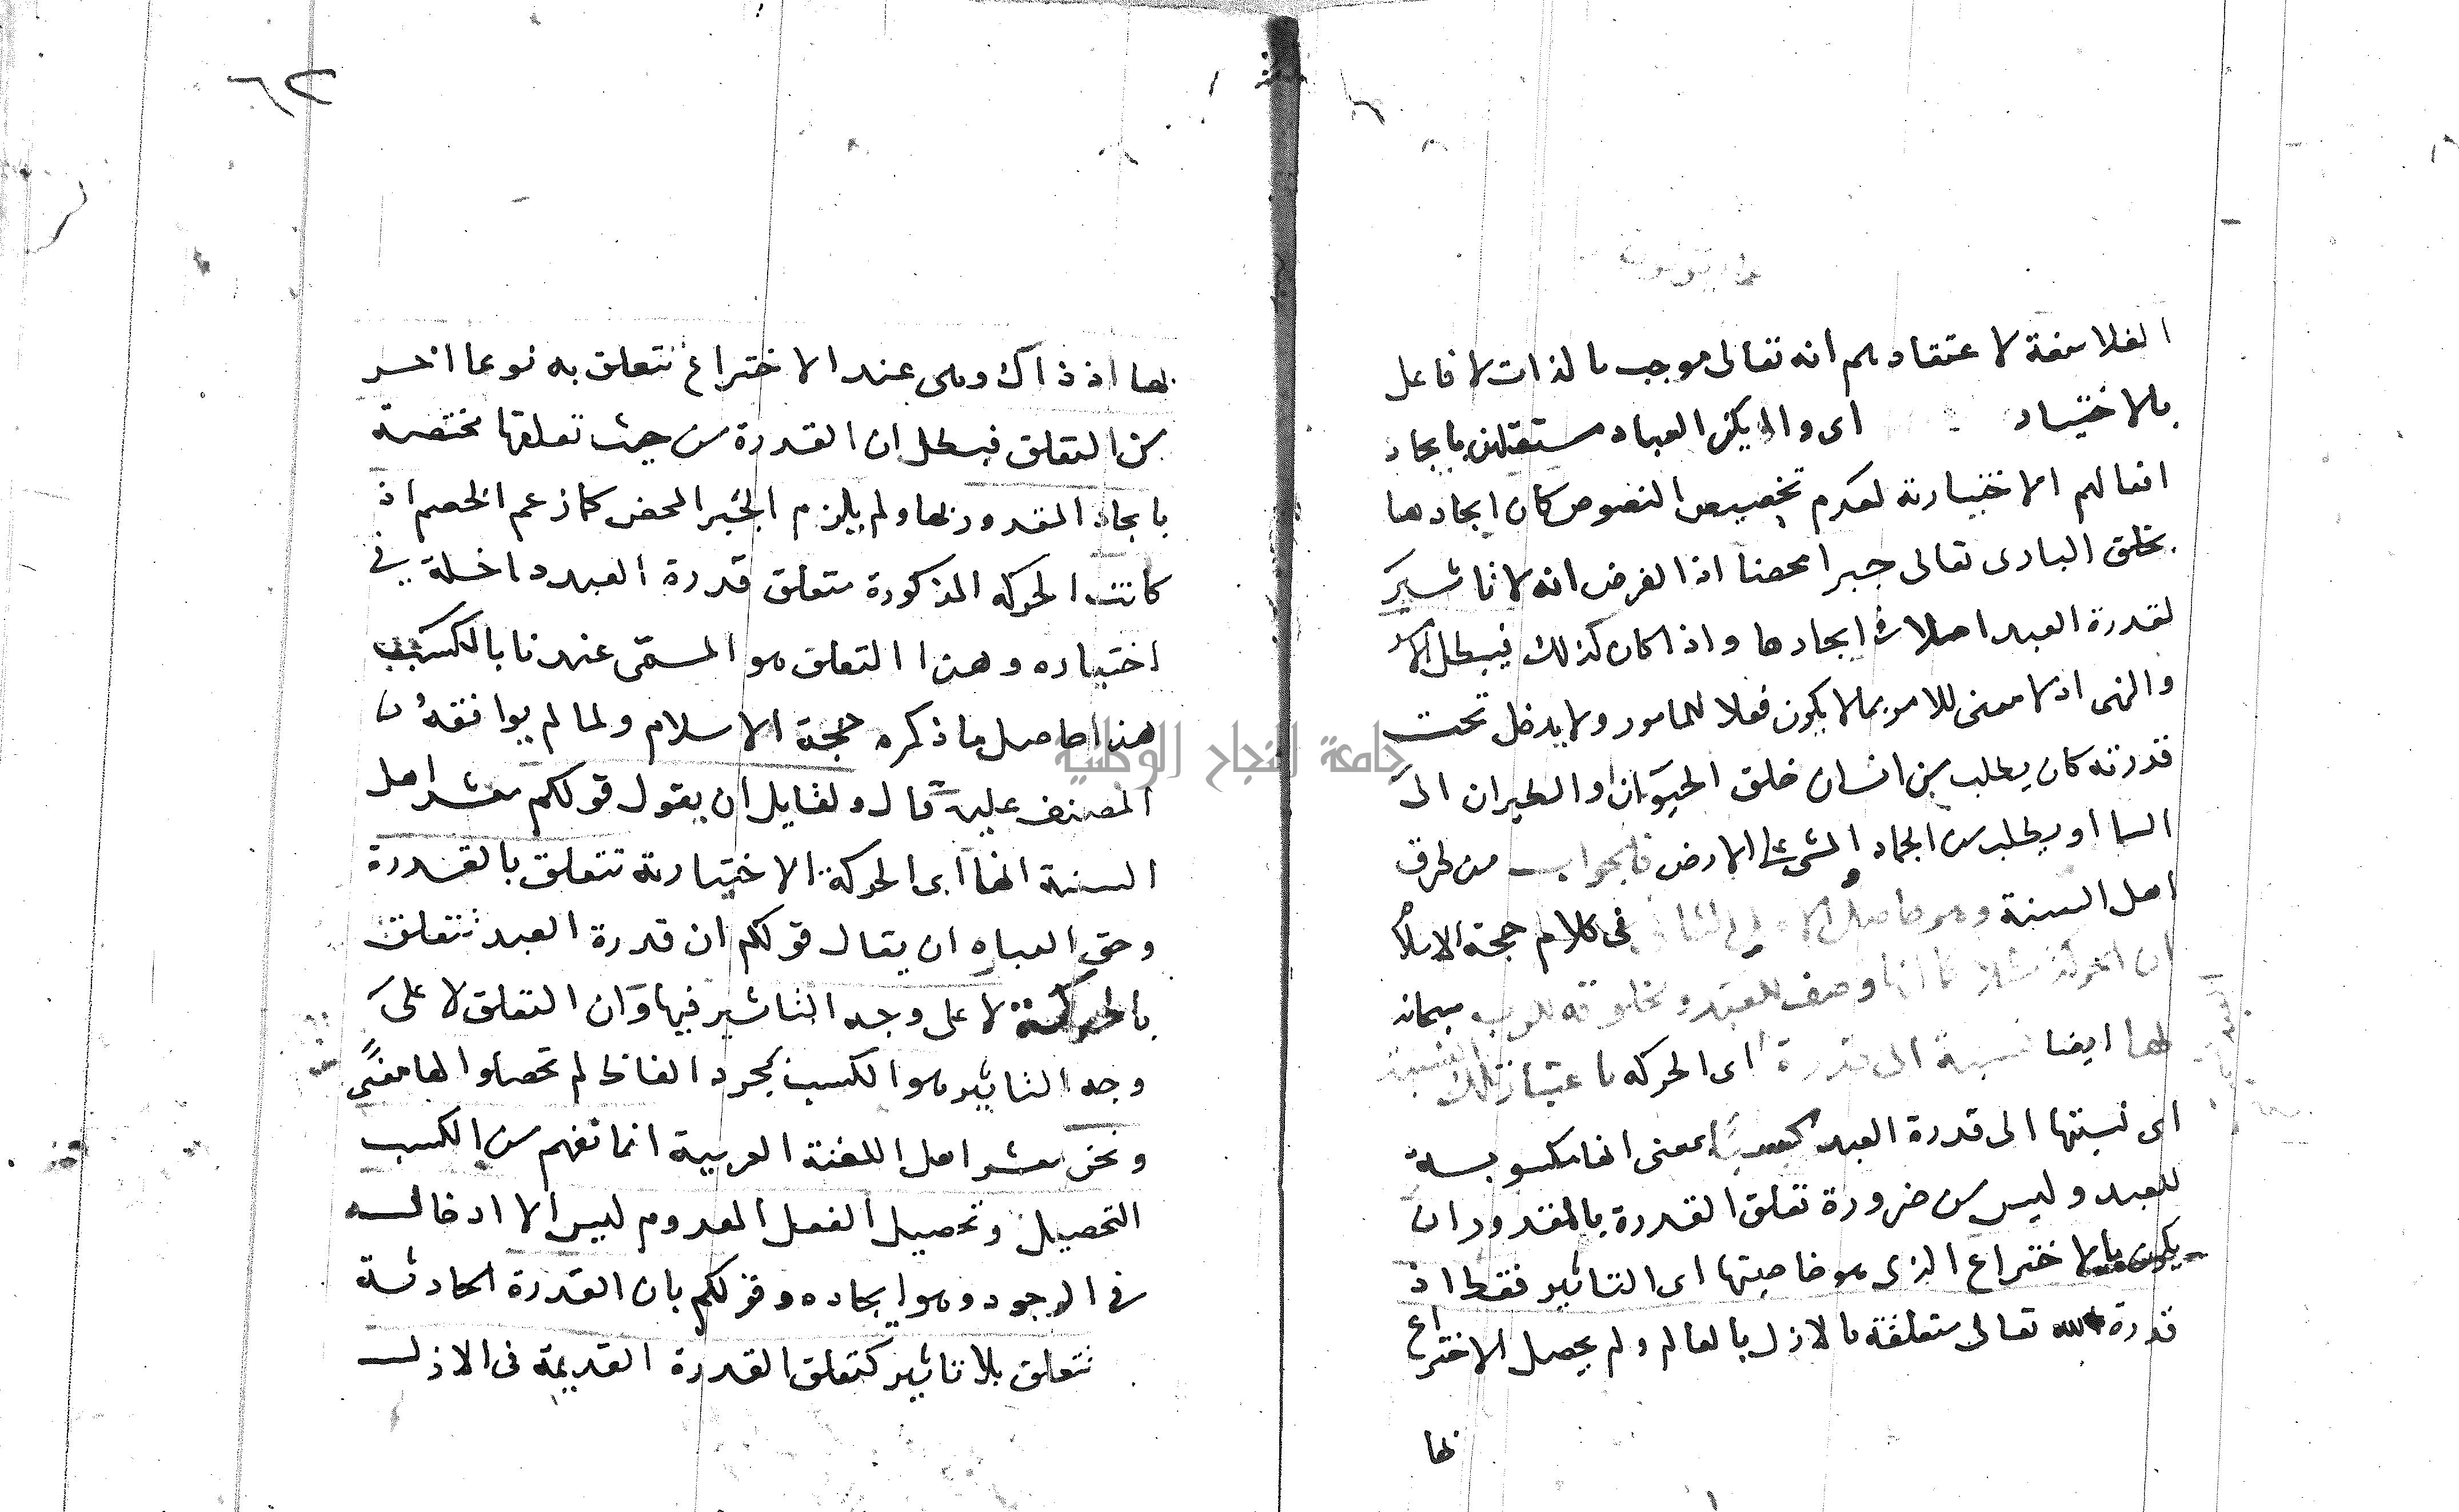 الفلاسفة لاعتقادهم انه تعالى موجب بالذات لا فاعل
بالاختيار اى والا يكن العباد مستقلين بايجاد
افعالهم الاختيارية لعدم تخصيص النصوص كان ايجادها
بخلق البارى تعالى جبرا محضا اذ الفرض انه لا تاثير
لقدرة العبد اصلا فى ايجادها واذا كان كذلك فيبطل الامر
والنهى اذ لا معنى للامر بما لا يكون فعلا للمامور ولا يدخل تحت
قدرته كان يطلب من انسان خلق الحيوان او الطيران الى
السما او يطلب من الجماد المشى على الارض فالجواب من طرف
اهل السنة وهو حاصل فى كلام حجة الاسلام
ان الحركة مثلا كما انها وصف للعبد ومخلوقة للرب سبحانه
لها ايضا نسبة الى قدرة اى الحركة باعتبار تلك النسبة
اى نسبتها الى قدرة العبد كسبا بمعنى انها مكسوبة
للعبد وليس من ضرورة تعلق القدرة بالمقدور ان
يكون بالاختراع الذى هو خاصيتها اى التاثير فقط اذ
قدرة الله تعالى متعلقة بالازل بالعالم ولم يحصل الاختراع
بها
٦٢
بها اذ ذاك وهى عند الاختراع تتعلق به نوعا اخر
من التعلق فبطل ان القدرة من حيث تعلقها مختصة
بايجاد المقدور بها ولم يلزم الجبر المحض كما زعم الخصم اذ
كانت الحركة المذكورة متعلق قدرة العبد داخلة فى
اختياره وهذا التعلق هو المسمى عندنا بالكسب
هذا حاصل ما ذكره حجة الاسلام ولما لم يوافقه
المصنف عليه قال ولقايل ان يقول قولكم معشر اهل
السنة انها اى الحركة الاختيارية تتعلق بالقدرة
وحق العباره ان يقال قولكم ان قدرة العبد تتعلق
بالحركة لا على وجه التاثير فيها وان التعلق لا على
وجه التاثير هو الكسب مجرد الفاظ لم تحصلوا لها معنى
ونحن معشر اهل اللغة العربية انما نفهم من الكسب
التحصيل وتحصيل الفعل المعدوم ليس الا ادخاله
فى الوجود وهو ايجاده وقولكم بان القدرة الحادثة
تتعلق بلا تاثير كتعلق القدرة القديمة فى الازل
جامعة النجاح الوطنية